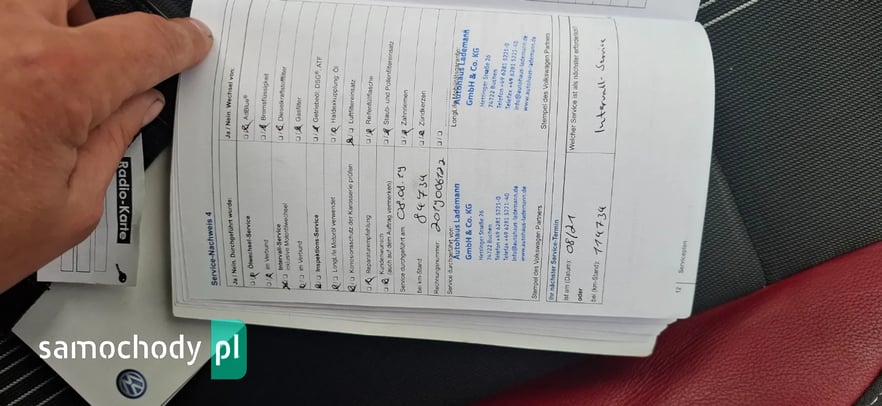 Service-Nachweis 4
Ja / Nein Durchgeführt wurde:
Ölwechsel-Service
im Verbund
Intervall-Service
inklusive Motorölwechsel
im Verbund
Inspektions-Service
LongLife Motoröl verwendet
Korrosionsschutz der Karosserie prüfen
Reparaturempfehlung
Kundenwunsch
(auch auf dem Auftrag vermerken)
Service durchgeführt am:
bei km-Stand: 84734
Rechnungsnummer: 2019006122
Service durchgeführt von:
Autohaus Lademann
GmbH & Co. KG
Hettinger Straße 26
74722 Buchen
Telefon +49 6281 5221-0
Telefax +49 6281 5221-40
info@autohaus-lademann.de
www.autohaus-lademann.de
Stempel des Volkswagen Partners
Ihr nächster Service-Termin
ist am (Datum): 08/21
oder
bei (km-Stand): 114734
Ja / Nein Wechsel von:
AdBlue®
Bremsflüssigkeit
Dieselkraftstofffilter
Gasfilter
Getriebeöl: DSG®, ATF
Haldexkupplung: Öl
Luftfiltereinsatz
Reifenfüllflasche
Staub- und Pollenfiltereinsatz
Zahnriemen
Zündkerzen
Autohaus Lademann
GmbH & Co. KG
Hettinger Straße 26
74722 Buchen
Telefon +49 6281 5221-0
Telefax +49 6281 5221-40
info@autohaus-lademann.de
www.autohaus-lademann.de
Stempel des Volkswagen Partners
Welcher Service ist als nächster erforderlich?
Intervall-Service
12
Serviceplan
Radio-Karte
samochody pl